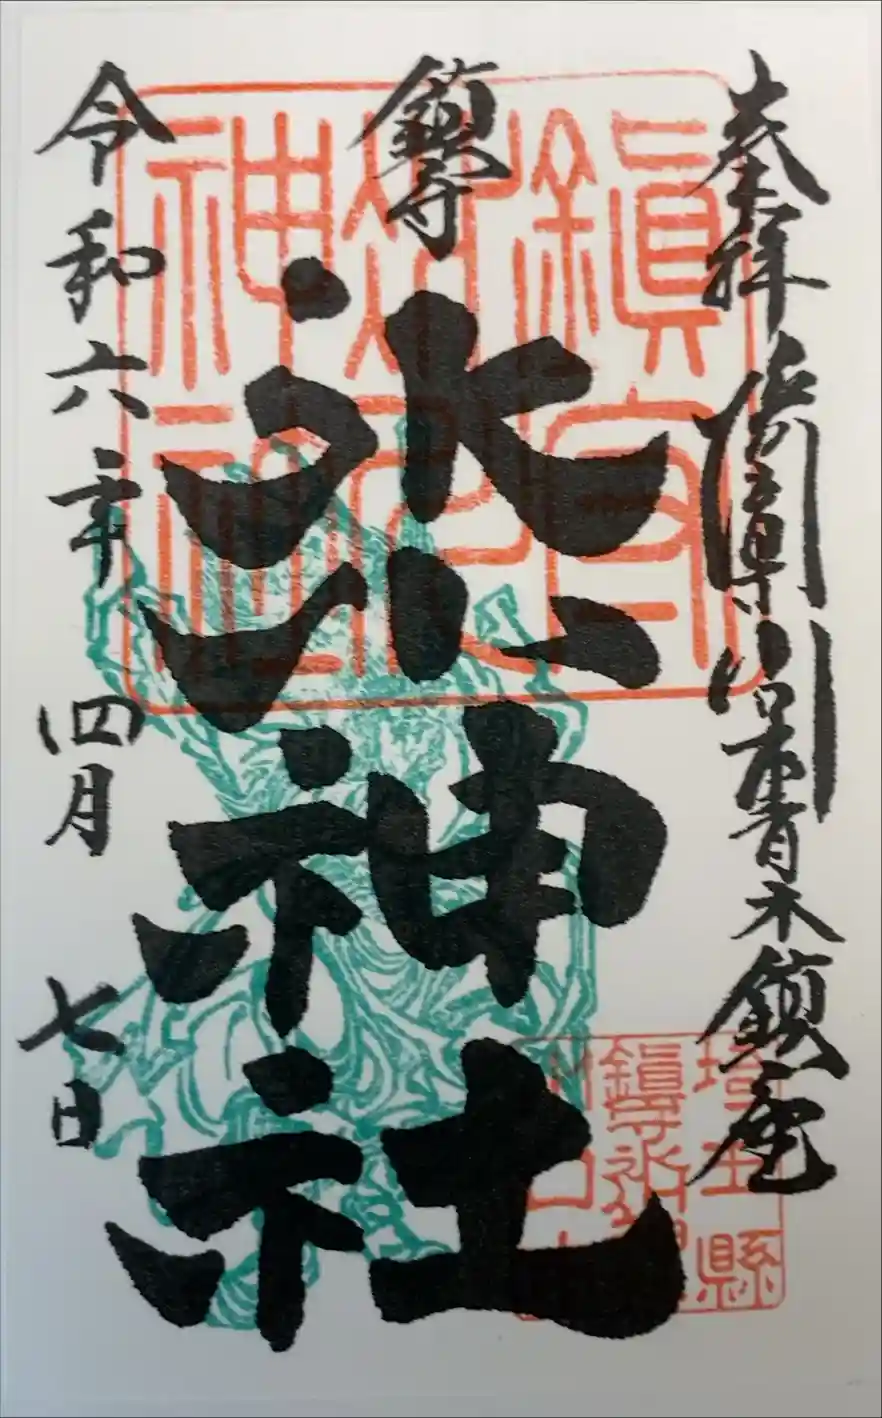 奉拝 川口市青木鎮座
鎮守
氷川神社
令和六年 四月 七日
鎮守
氷川
神社
埼玉縣
鎮守氷川神